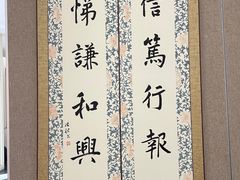 信篤行報
悌謙和興